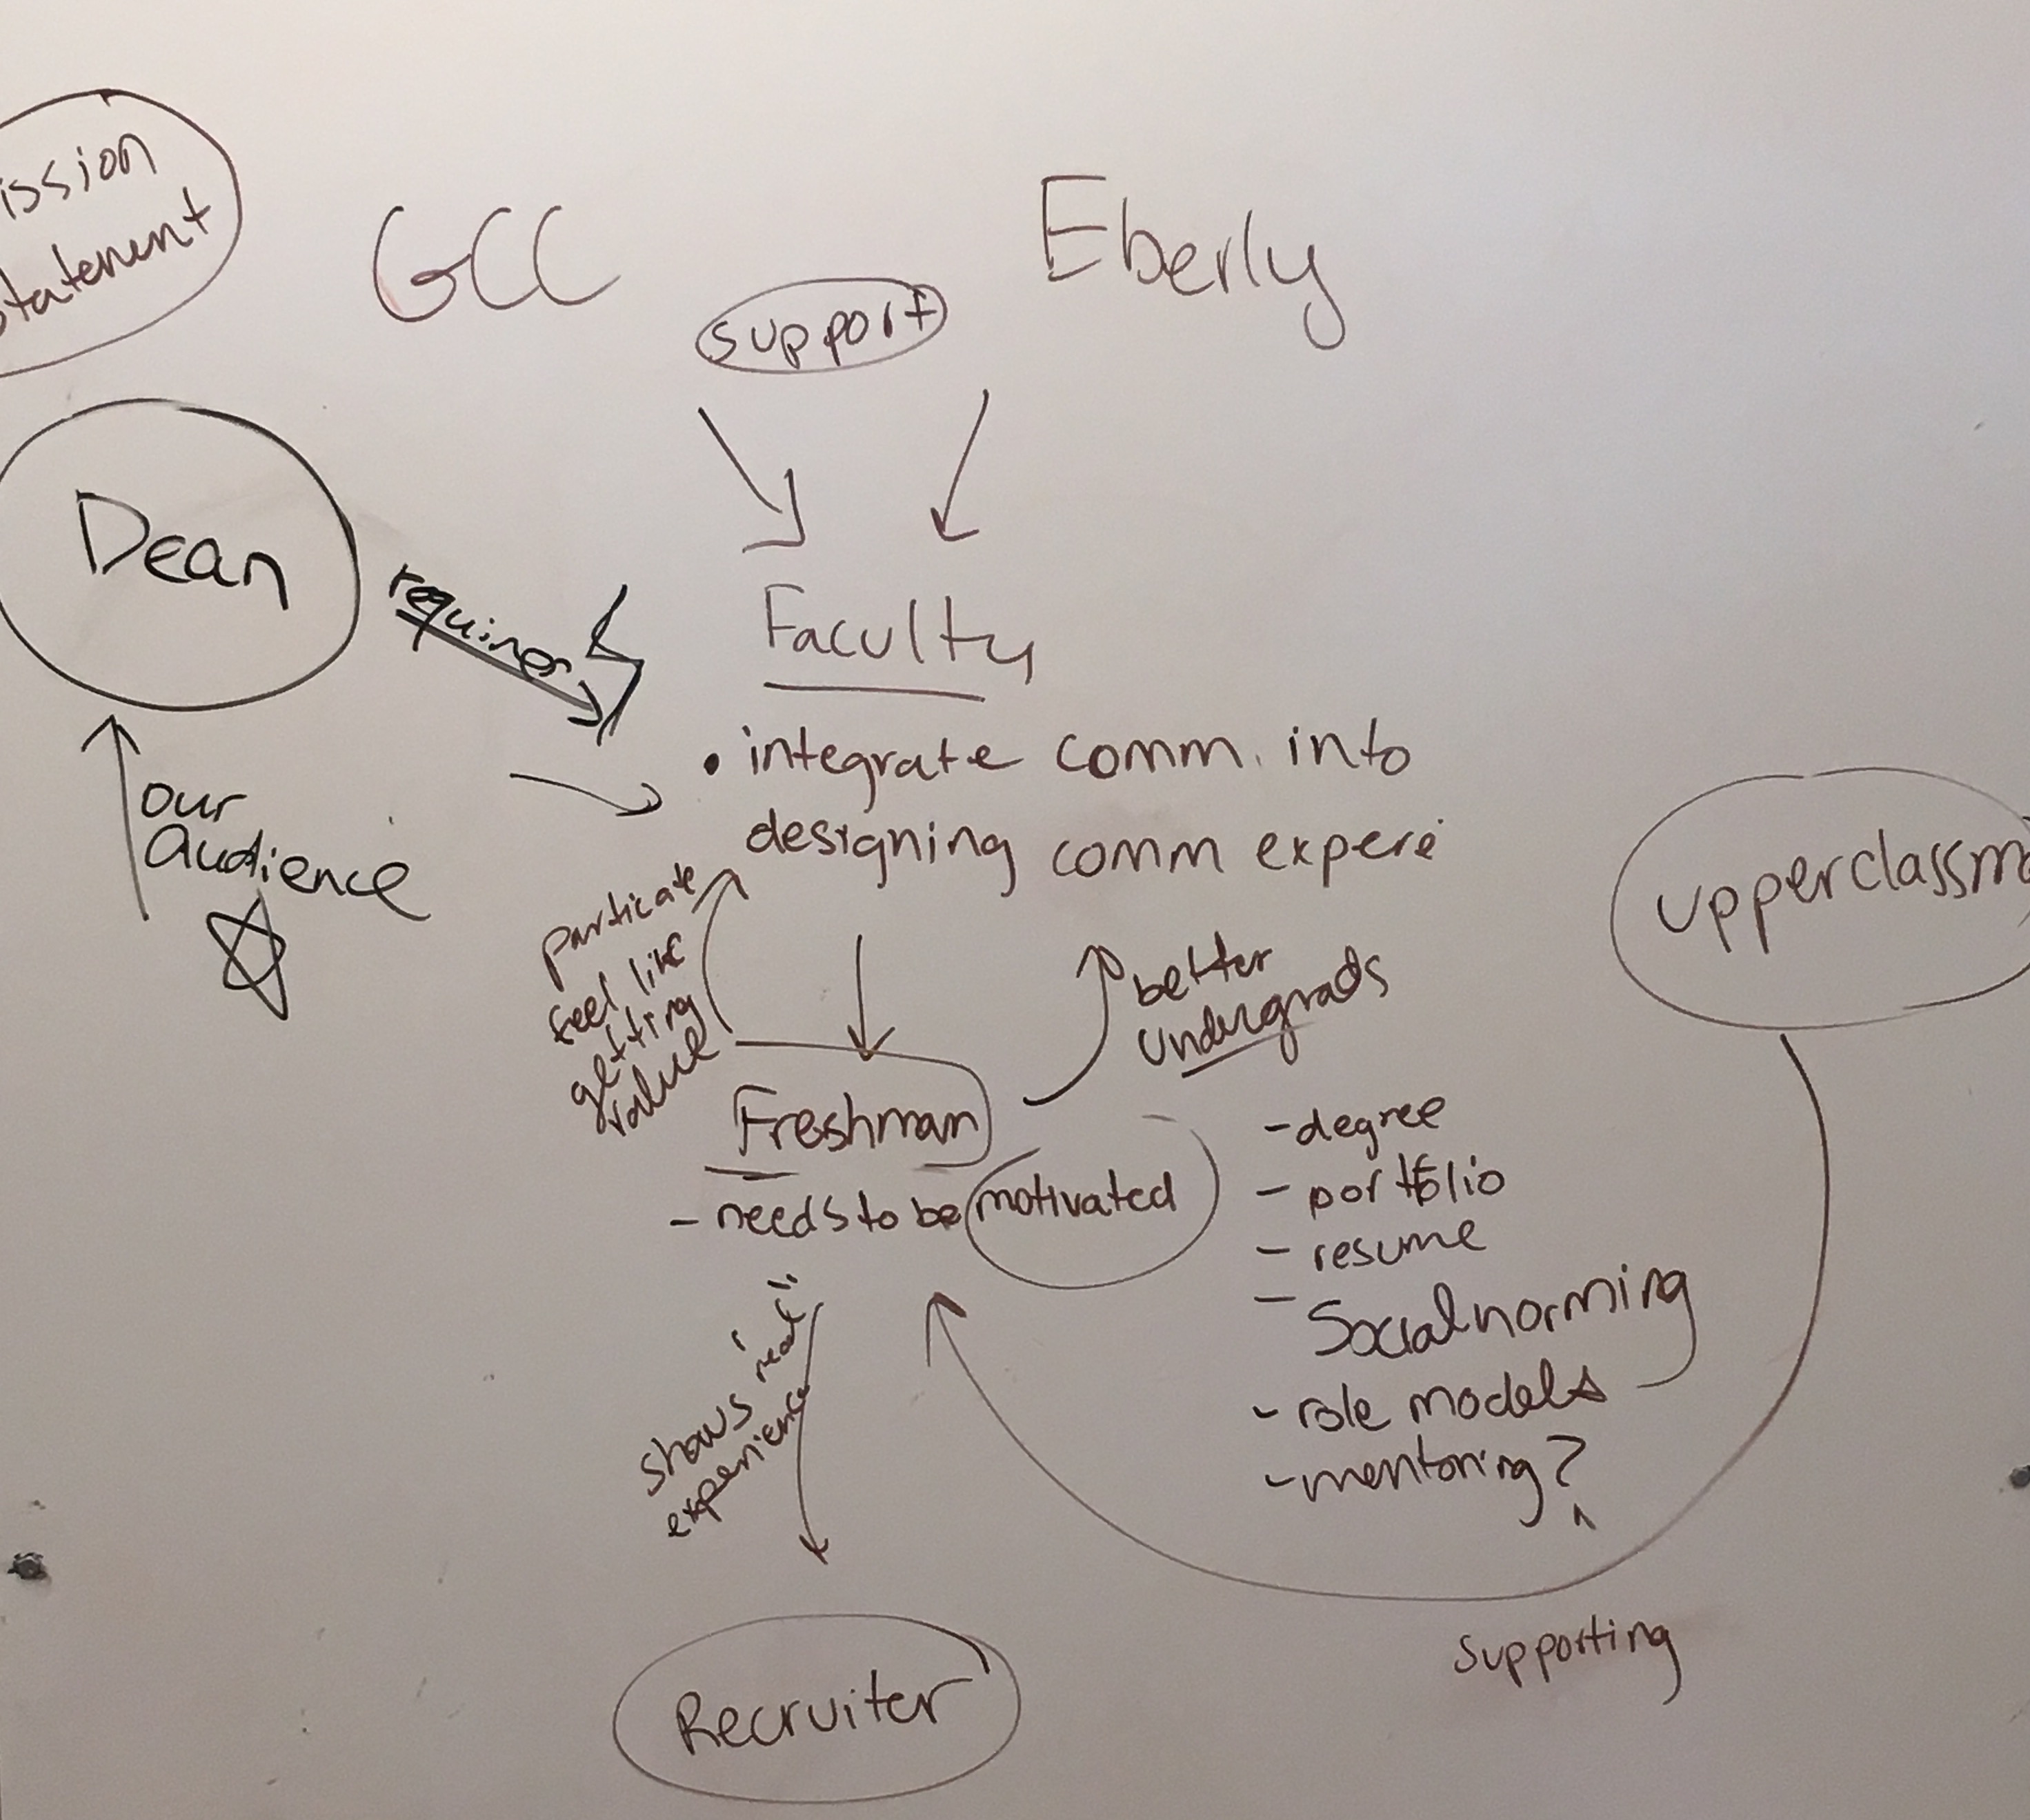 ission
statement
GCC
Eberly
support
Dean
requires
Faculty
• integrate comm. into
designing comm expere
our
Audience
upperclassm
particate
feel like
getting
value
better
undergrads
Freshman
- needs to be motivated
- degree
- portfolio
- resume
-
Social norming
- role models
- mentoring?
shows "real"
experience
supporting
Recruiter